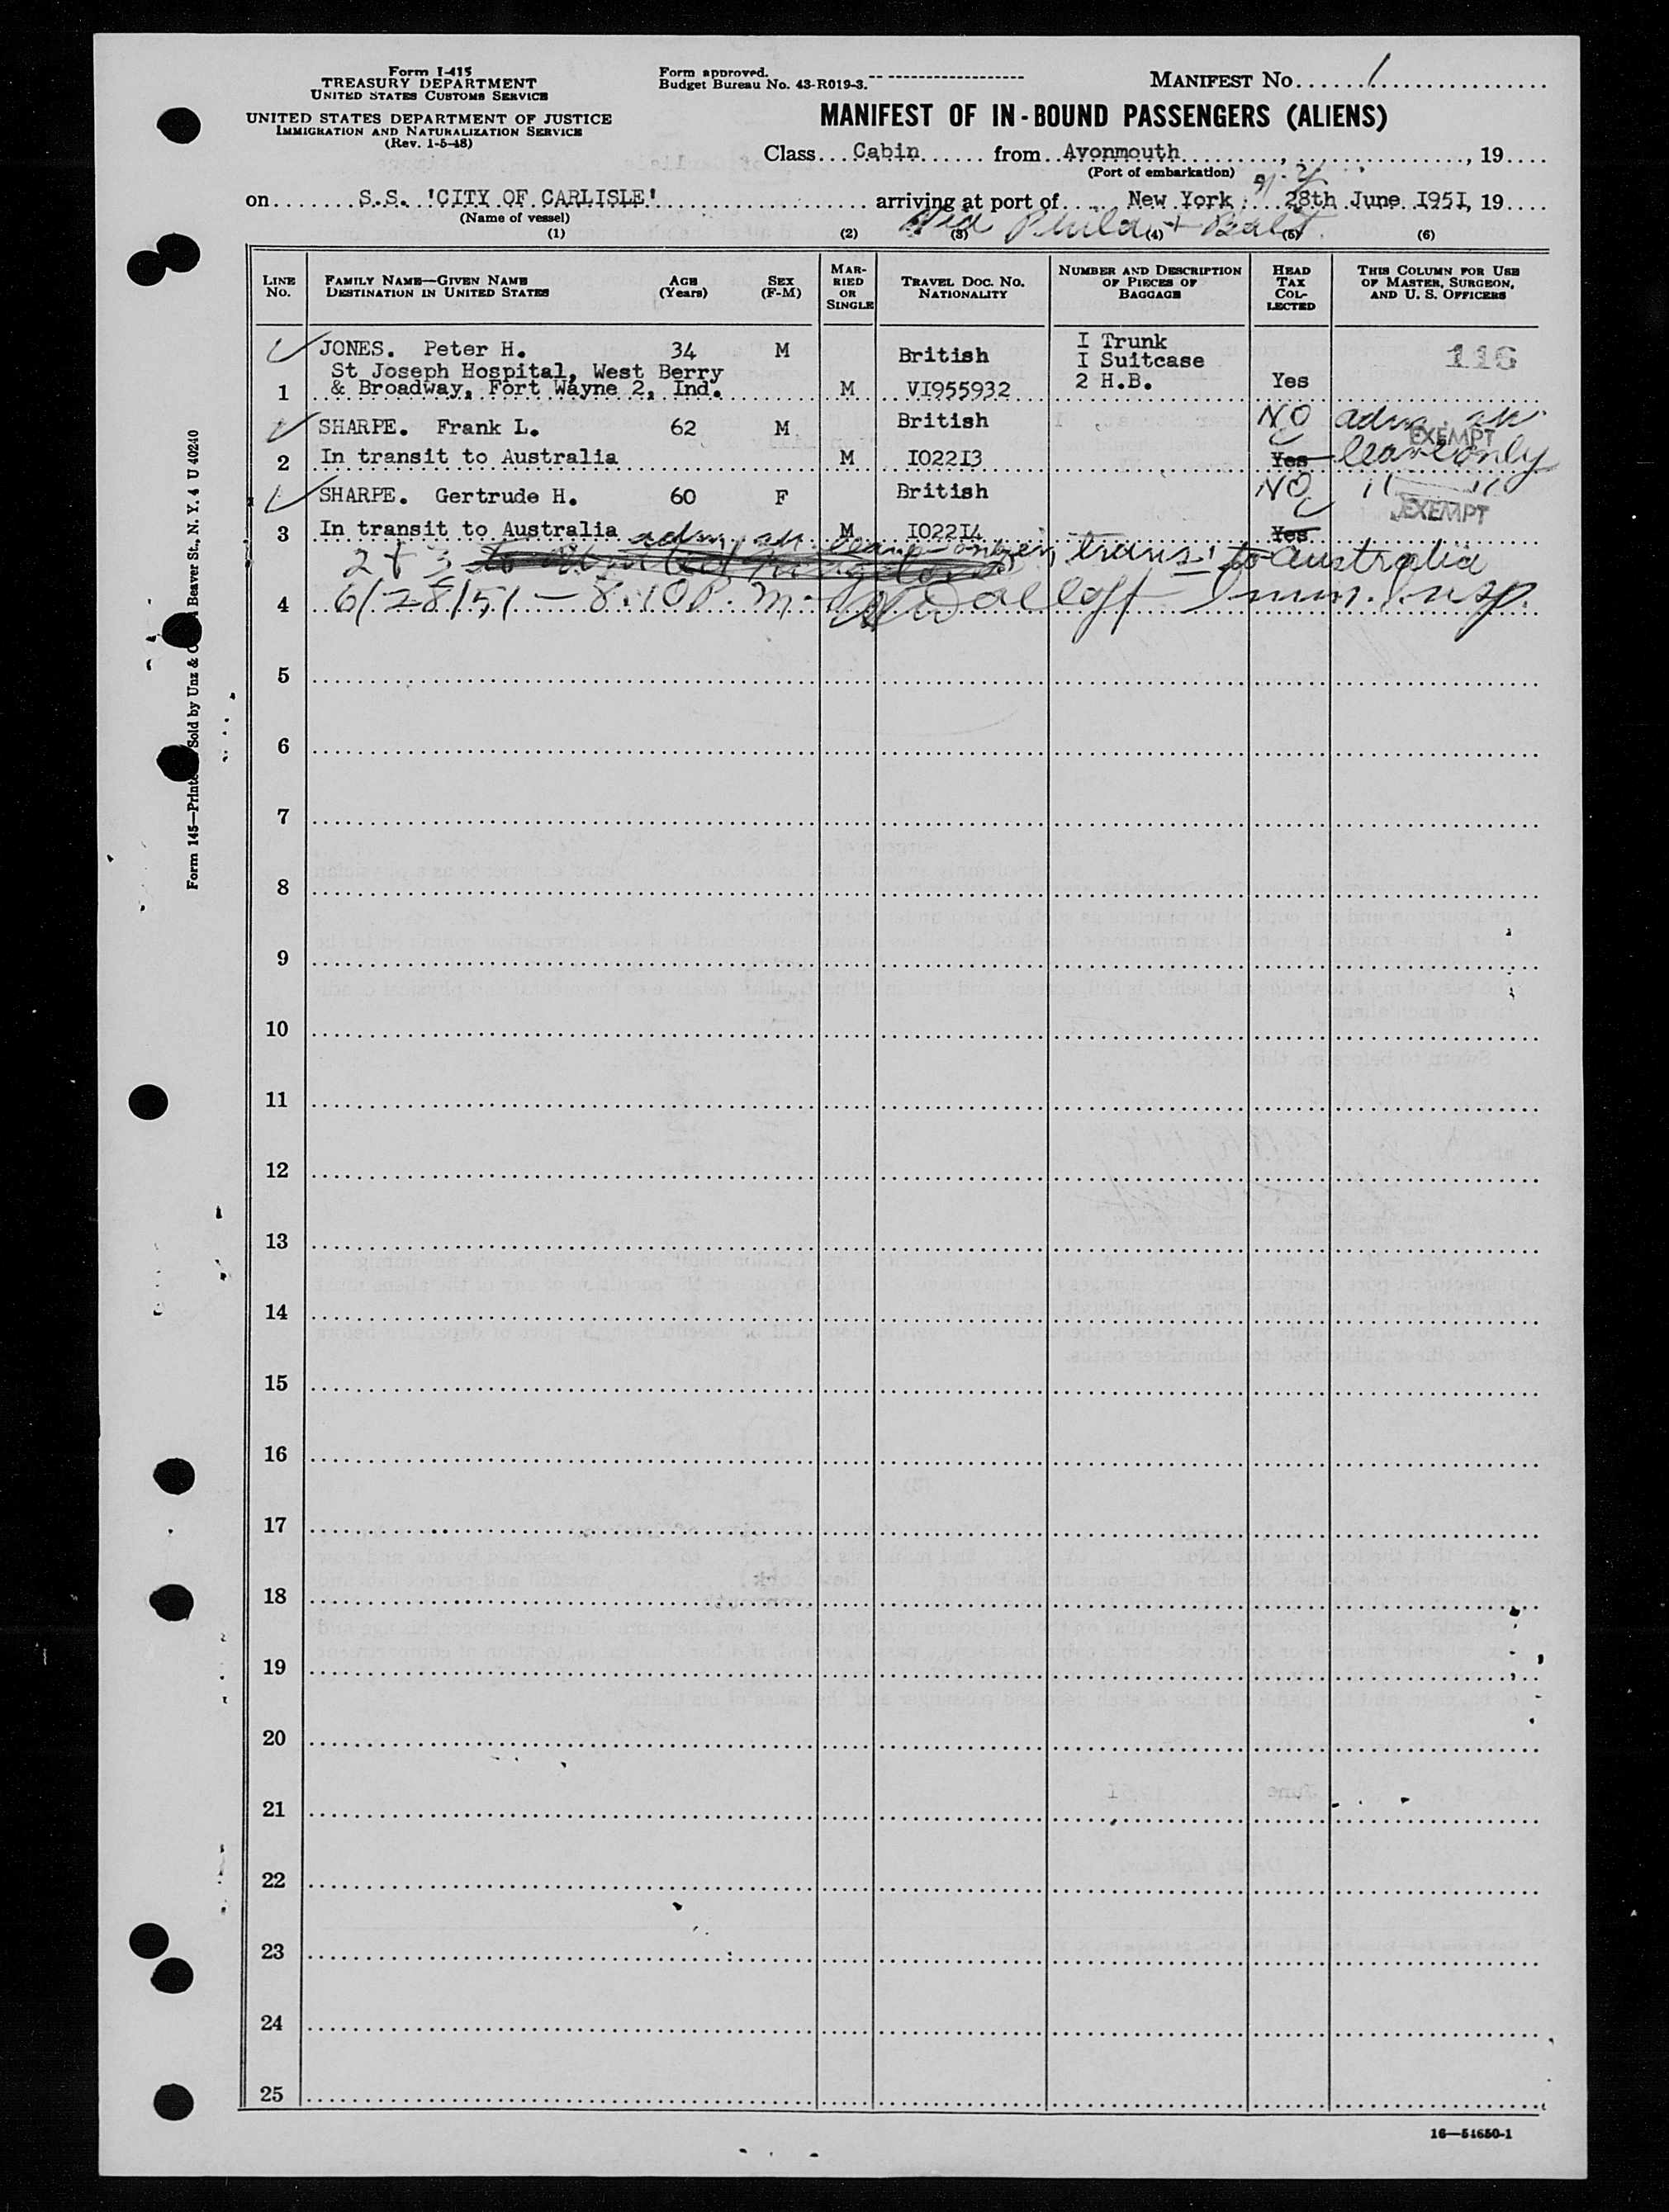 Form I-415
TREASURY DEPARTMENT
UNITED STATES CUSTOMS SERVICE
UNITED STATES DEPARTMENT OF JUSTICE
IMMIGRATION AND NATURALIZATION SERVICE
(Rev. 1-5-48)
Form approved.
Budget Bureau No. 43-R019-3.
MANIFEST No. 1
MANIFEST OF IN-BOUND PASSENGERS (ALIENS)
Class Cabin from Avonmouth, , 19
(Port of embarkation)
n.y.
on S.S. 'CITY OF CARLISLE' arriving at port of New York 28th June I95I, 19
(Name of vessel)
Phila + Balt.
(1) (2) (3) (4) (5) (6)
LINE No. FAMILY NAME—GIVEN NAME DESTINATION IN UNITED STATES AGE (Years) SEX (F-M) MARRIED OR SINGLE TRAVEL DOC. NO. NATIONALITY NUMBER AND DESCRIPTION OF PIECES OF BAGGAGE HEAD TAX COLLECTED THIS COLUMN FOR USE OF MASTER, SURGEON, AND U. S. OFFICERS
JONES. Peter H. 34 M British I Trunk 116
St Joseph Hospital, West Berry I Suitcase
1 & Broadway, Fort Wayne 2, Ind. M VI955932 2 H.B. Yes
SHARPE. Frank L. 62 M British NO adm. EXEMPT
2 In transit to Australia M I022I3 Yes leave only
SHARPE. Gertrude H. 60 F British NO " " EXEMPT
3 In transit to Australia M I022I4 Yes
2 + 3 adm. trans. to Australia
4 6/28/51 — 8.10 P.m. Imm. Insp.
5
6
7
8
9
10
11
12
13
14
15
16
17
18
19
20
21
22
23
24
25
16—54650-1
Form 145—Printed Sold by Unz & Beaver St., N. Y. 4 U 40240